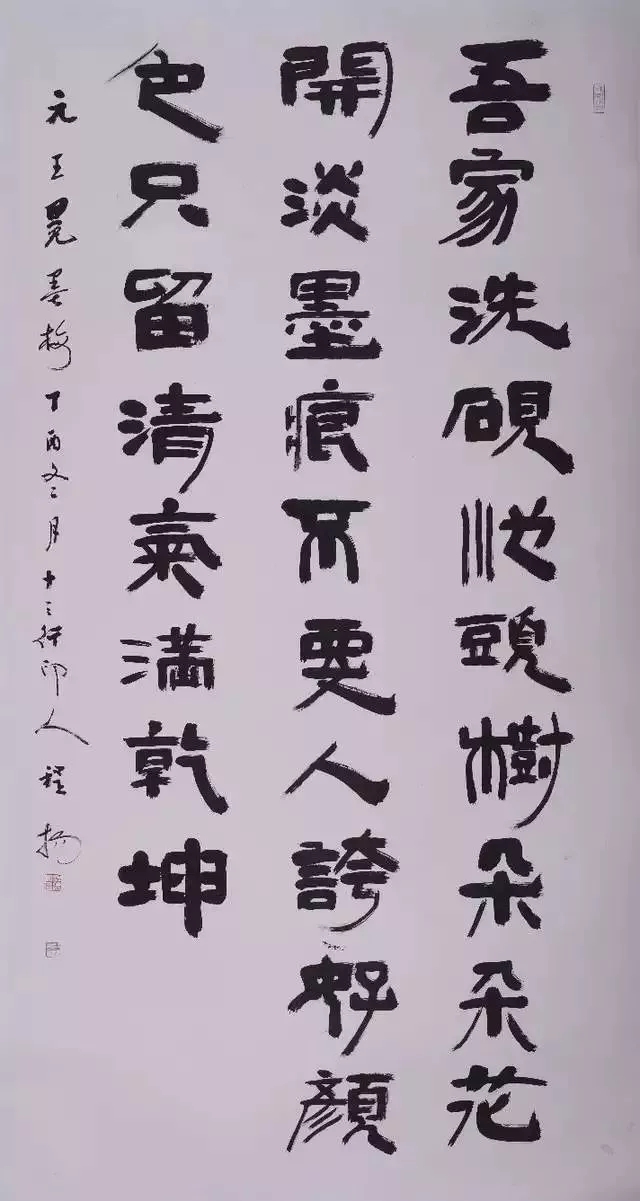 吾家洗硯池頭樹朵朵花
開淡墨痕不要人誇好顏
色只留清氣滿乾坤
元王冕墨梅丁酉冬二月十三行印人程揚